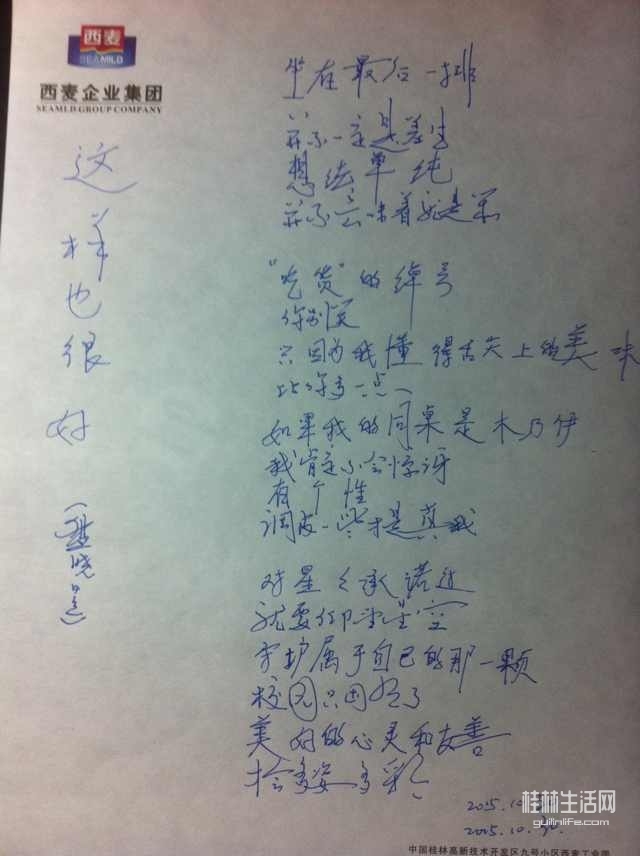 西麦
SEAMILD
西麦企业集团
SEAMILD GROUP COMPANY
这样也很好
坐在最后一排
并不一定是差生
想法单纯
并不意味着就是笨
"吃货"的绰号
你别笑
只因为我懂得舌尖上的美味
比你多一点
如果我的同桌是木乃伊
我肯定不会惊讶
有个性
调皮一些才是真我
对星星承诺过
就要仰望星空
守护属于自己的那一颗
校园只因为了
美好的心灵和友善
多姿多彩
2015.10
2015.10.30.
桂林生活网
guilinlife.com
中国桂林高新技术开发区九号小区西麦工业园